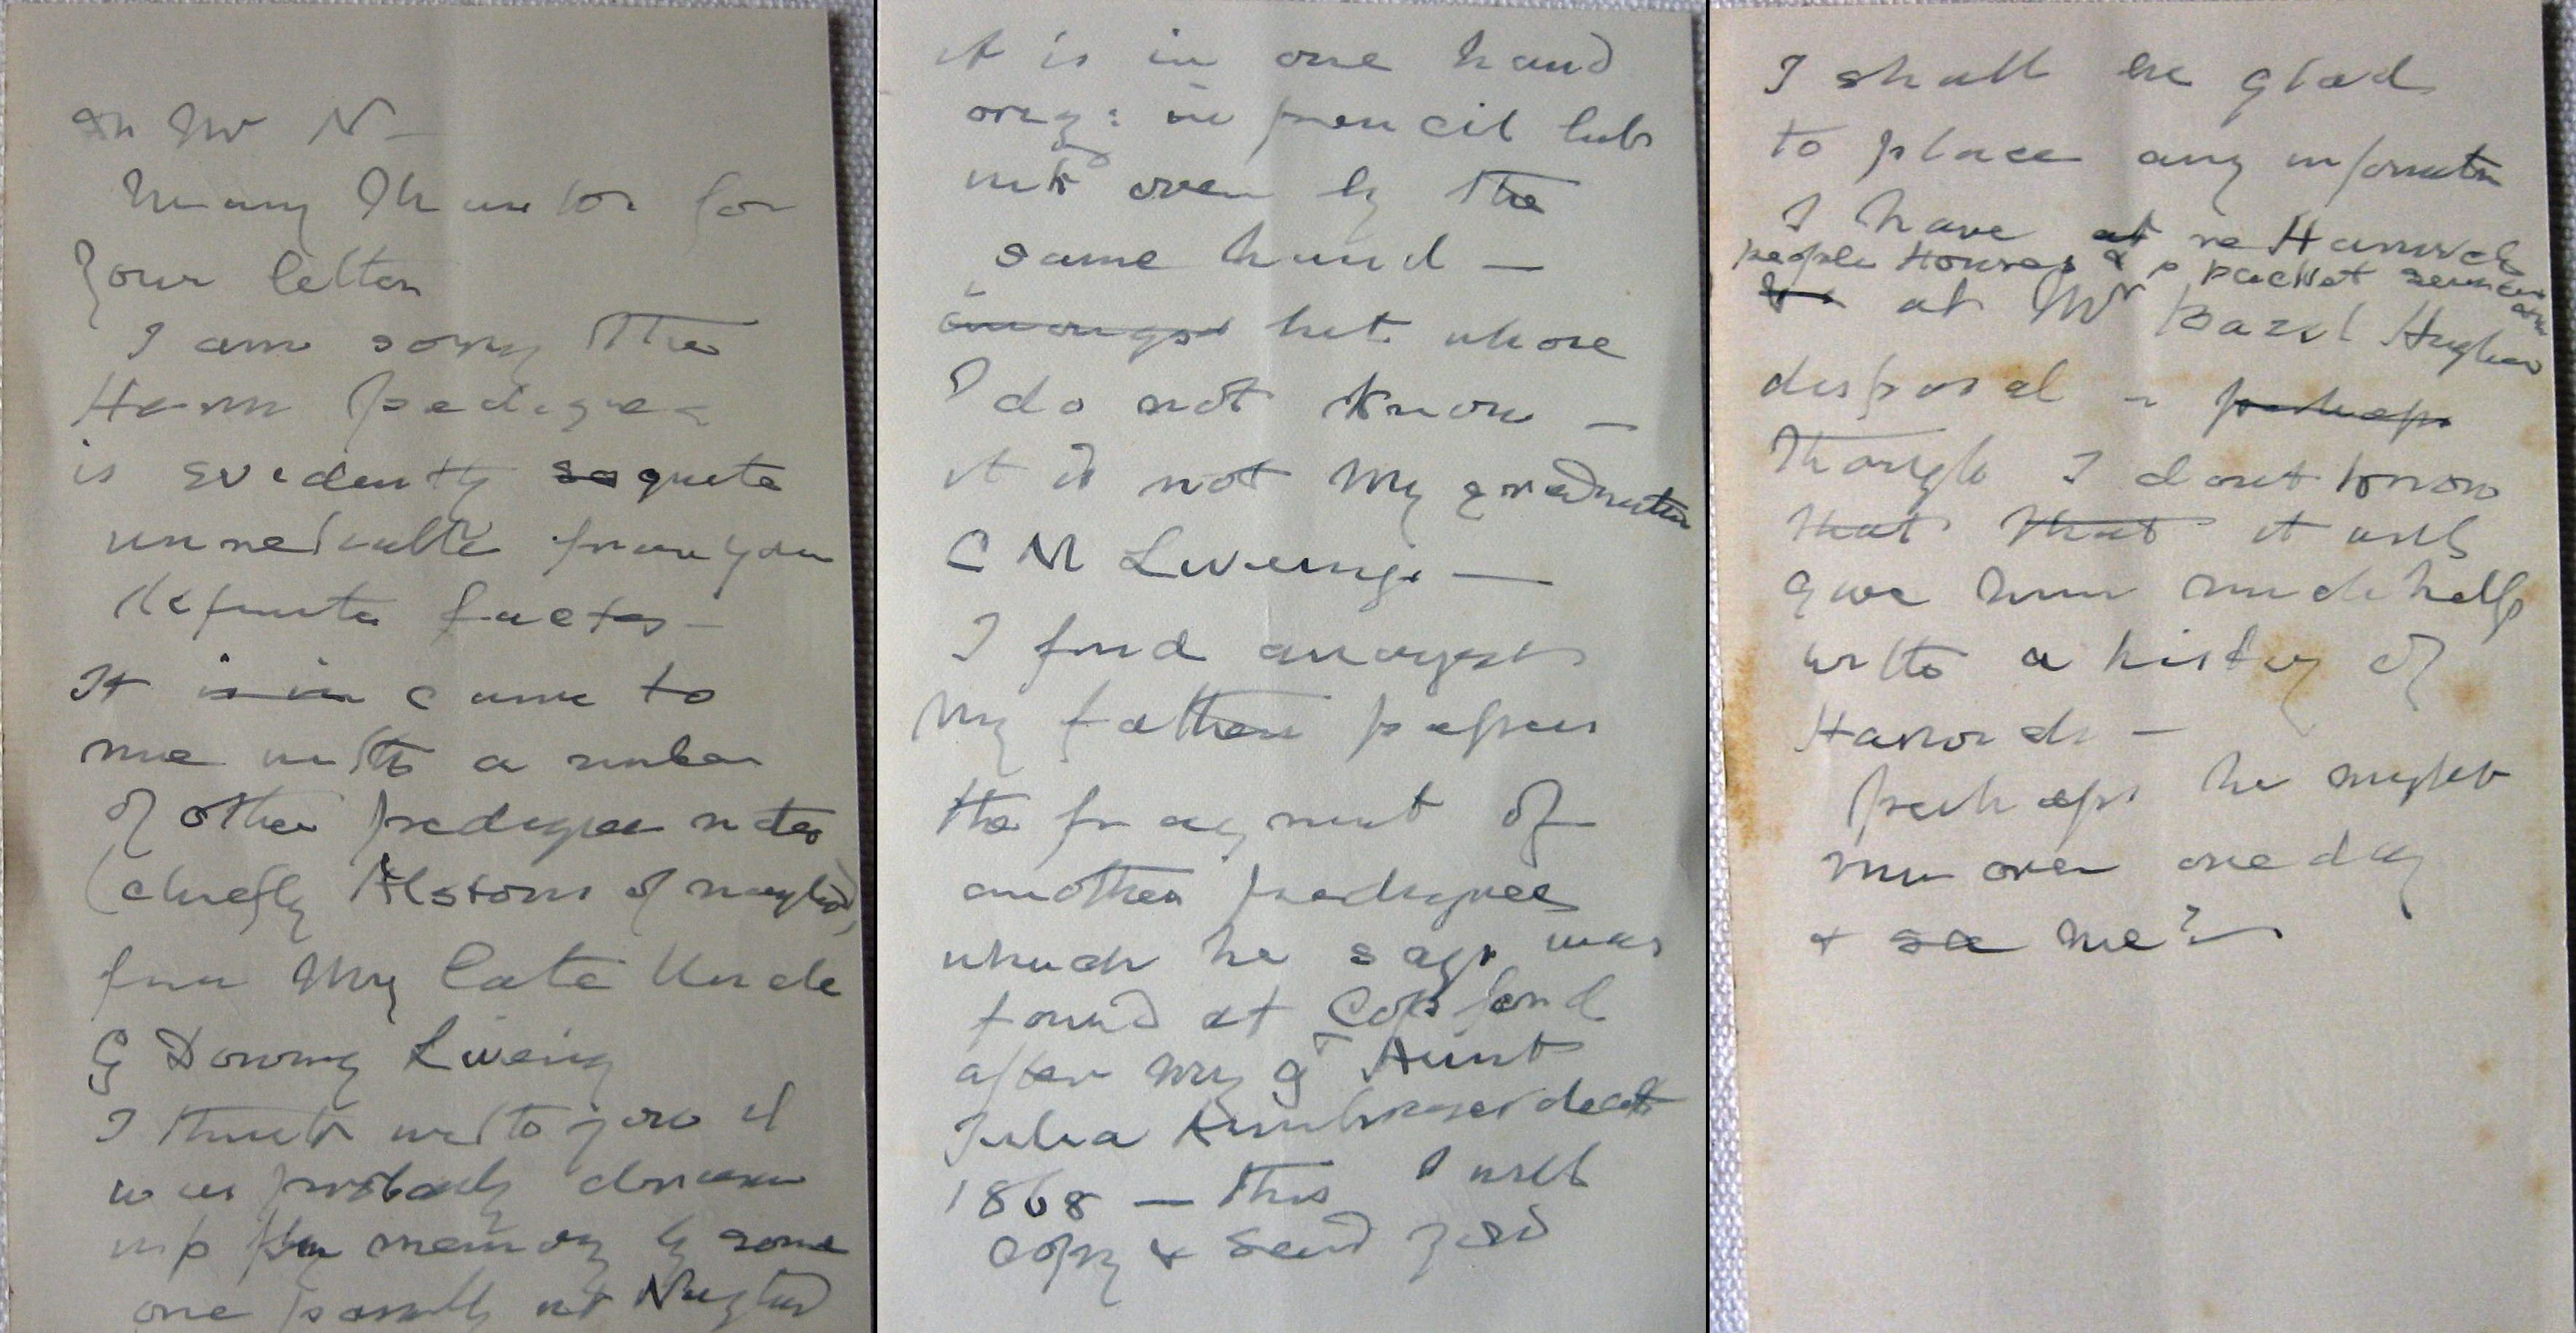 Dr Mr N –
Many Thanks for
your letter
I am sorry the
Hann pedigree
is evidently so quite
unreliable from your
definite facts –
It is in came to
me with a number
of other pedigree notes
(chiefly Alstons of Nayland)
from my late Uncle
G Downing Liveing
I think with you it
was probably drawn
up from memory by some
one possibly at Nayland
it is in one hand
orig: in pencil but
ink over by the
same hand –
amongst but whose
I do not know –
it is not my grandmother
C M Liveing –
I find amongst
my fathers papers
the fragment of
another pedigree
which he says was
found at Copford
after my gt Aunt
Julia Kimbers death
1868 – This I will
copy & send you
I shall be glad
to place any information
I have at re Harwich
people Houses & packet service
at Mr Bazil Hughes
disposal – perhaps
Though I dont know
that that it will
give him much help
with a history of
Harwich –
perhaps he might
run over one day
& see me? –